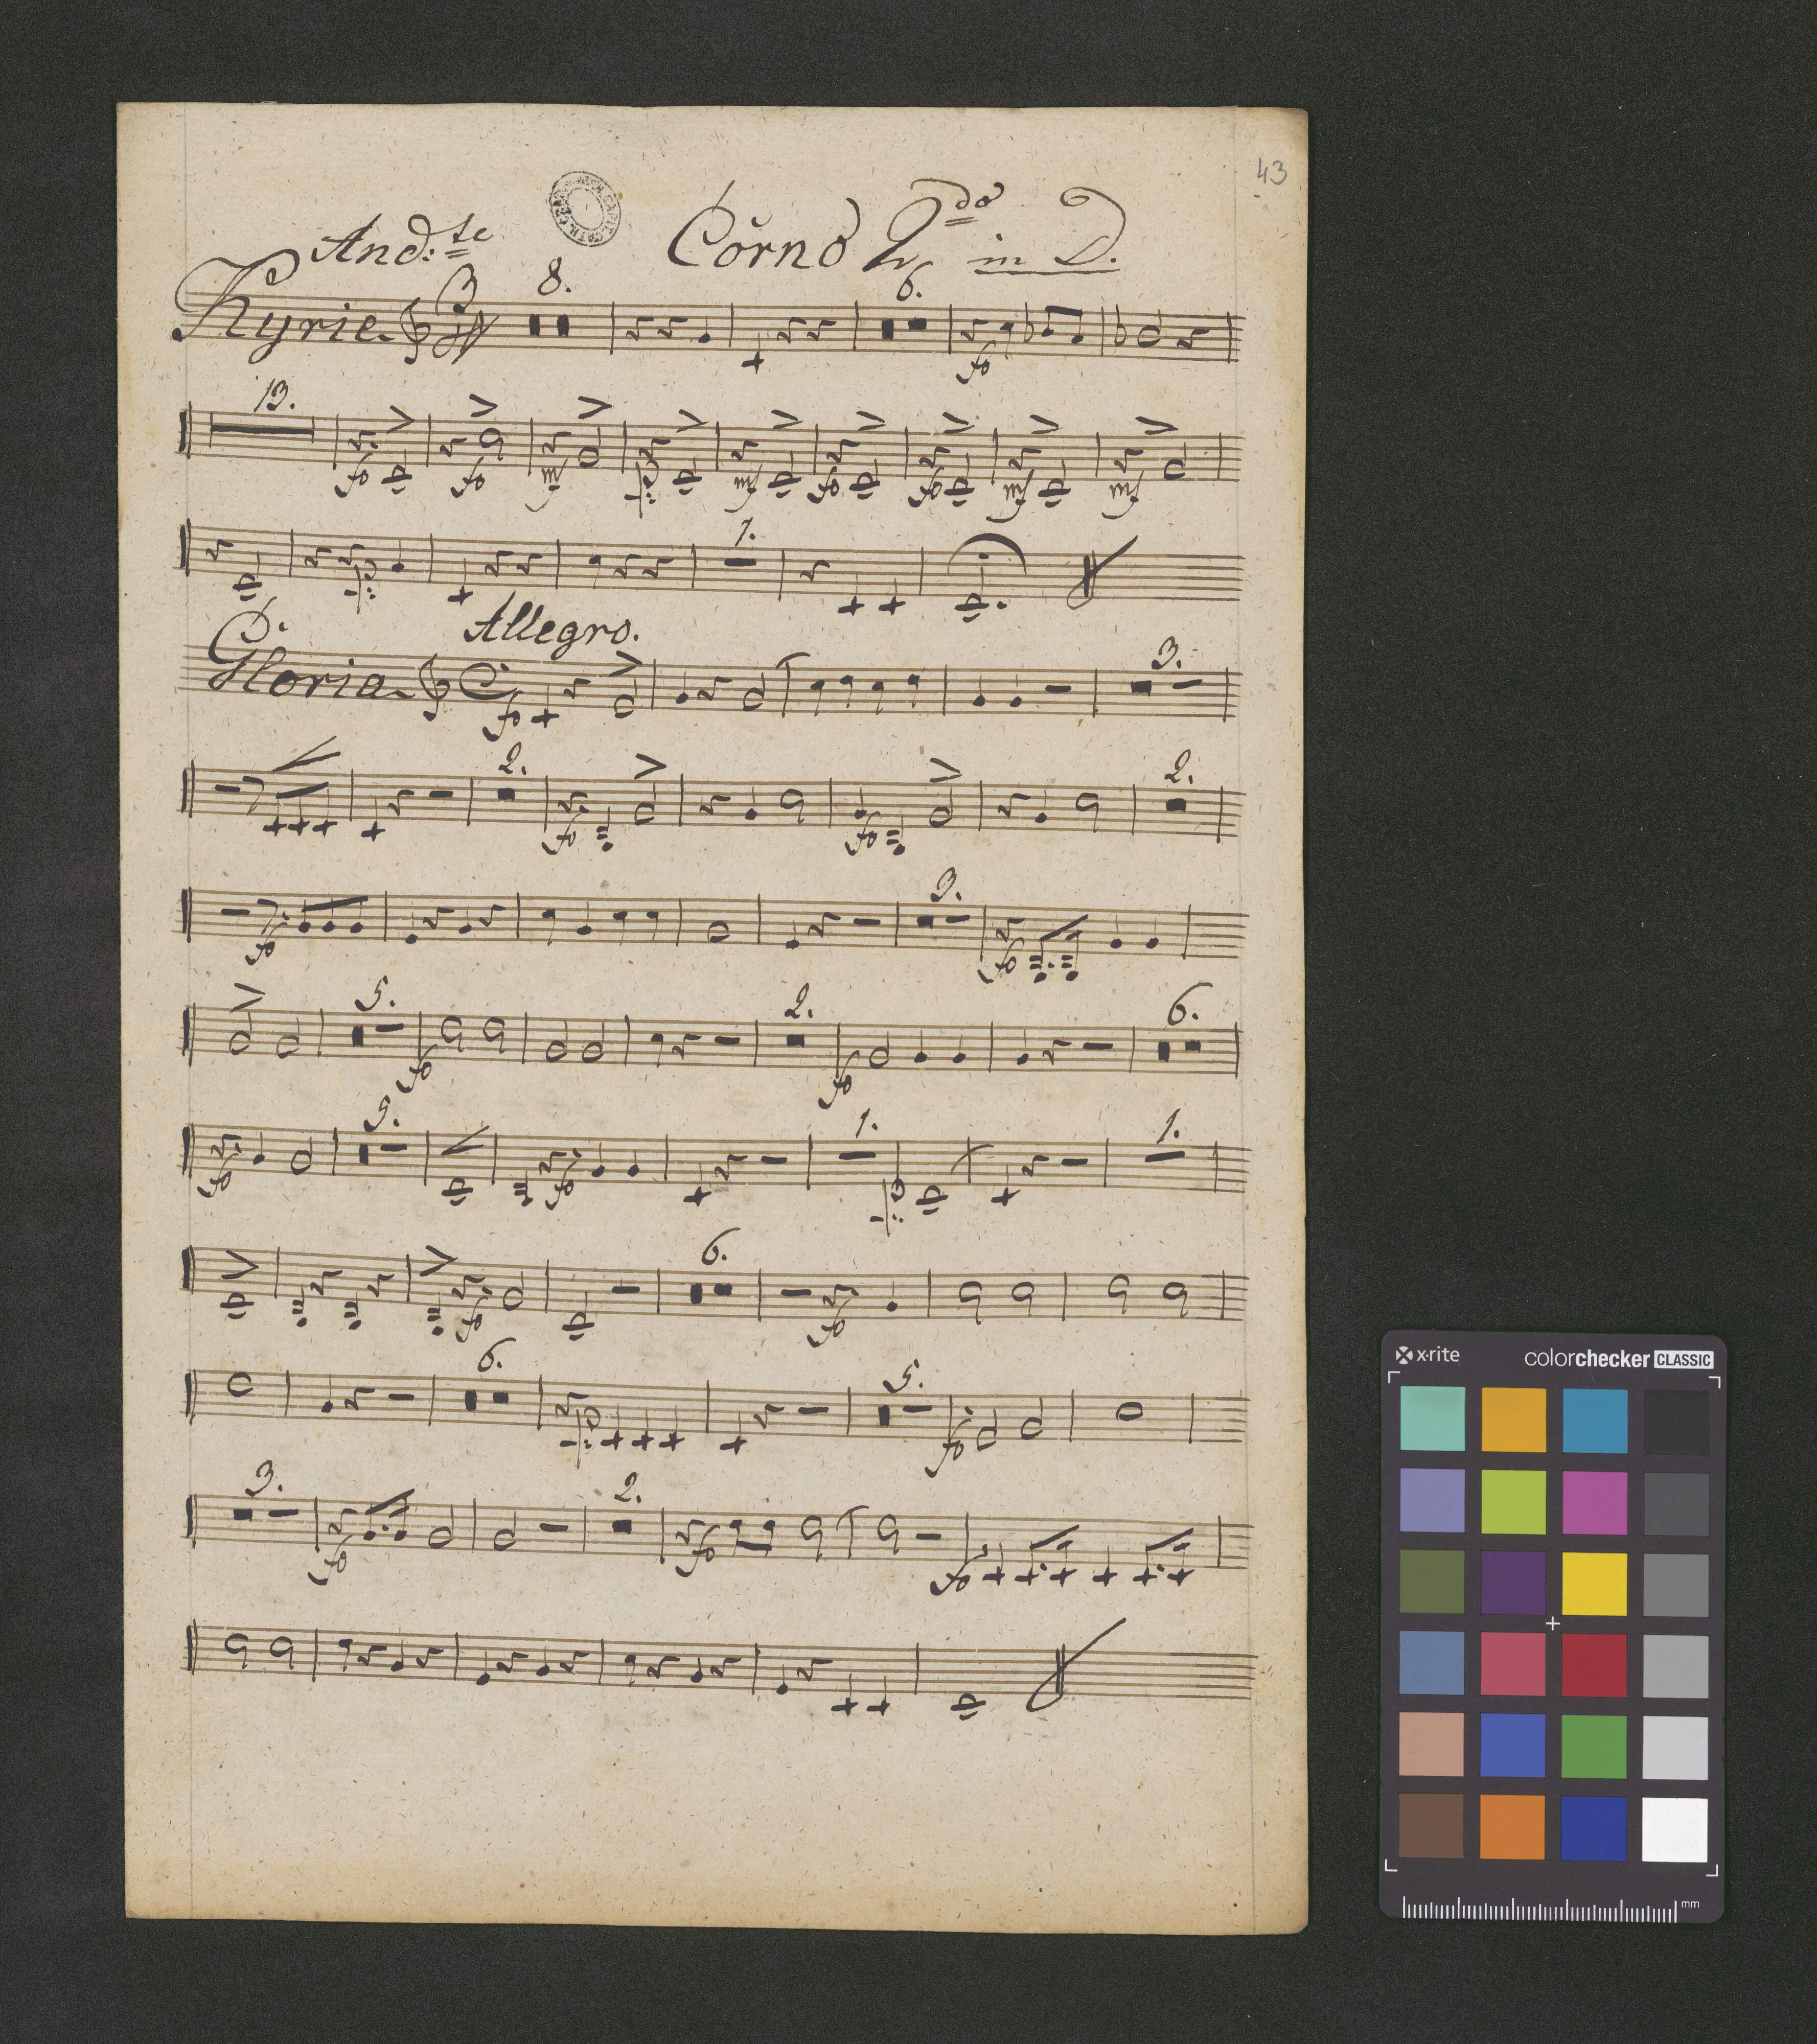 43
And:te Corno 2do in D.
8. 6.
Kyrie. 3/4 fo
13.
fo fo mf p: mf fo fo mf mf
1.
p:
Allegro.
3.
Gloria. C fo
2. 2.
fo fo
3.
fo fo
5. 2. 6.
fo fo
5. 1. 1.
fo fo p:
6.
fo fo
6. 5.
p: fo
3. 2.
fo fo fo
x-rite colorchecker CLASSIC
mm